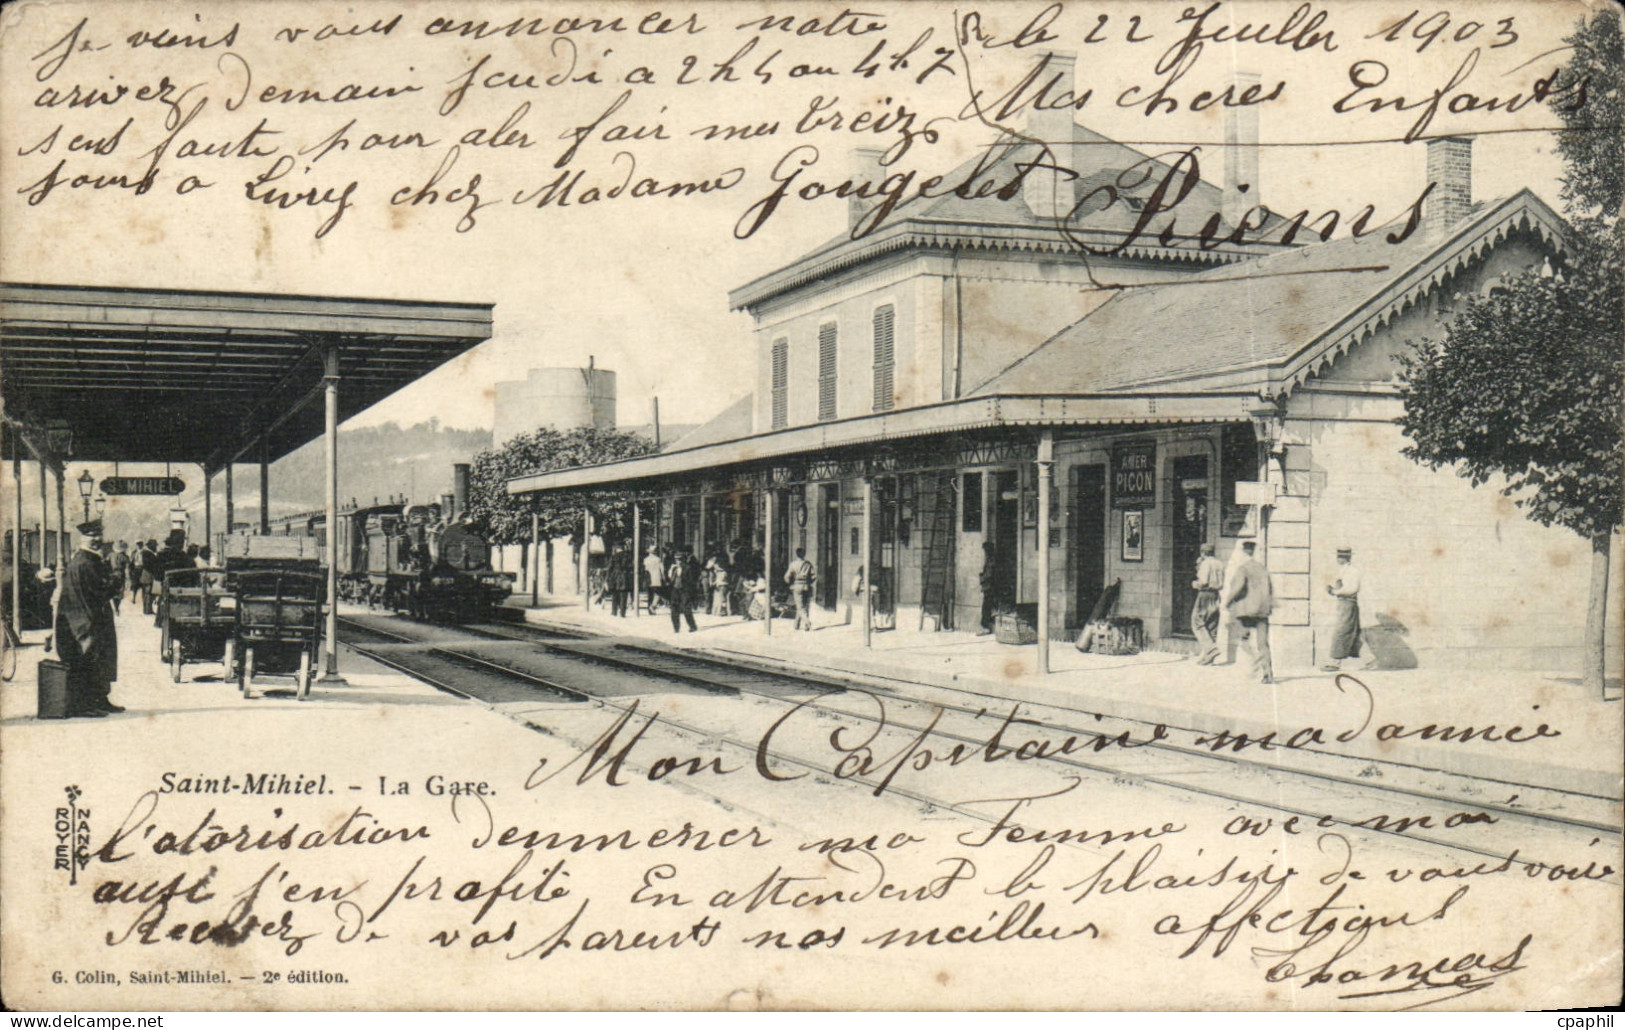 le 22 Juller 1903
Mes cheres Enfants
Riems
Je viens vous annoncer notre
arivez Demain Jeudi a 2h4 ou 4h7
sens faute pour aler fair mes treiz
jours a Livry chez Madame Gougelet
AMER
PICON
St MIHIEL
Saint-Mihiel. - La Gare.
ROYER
NANCY
Mon Capitaine madonnée
l'otorisation denmener ma Femme avec moi
ausi j'en profite En attendent le plaisir De vous voire
Recevez De vos parents nos meilleur affections
Thomas
G. Colin, Saint-Mihiel. — 2e édition.
cpaphil